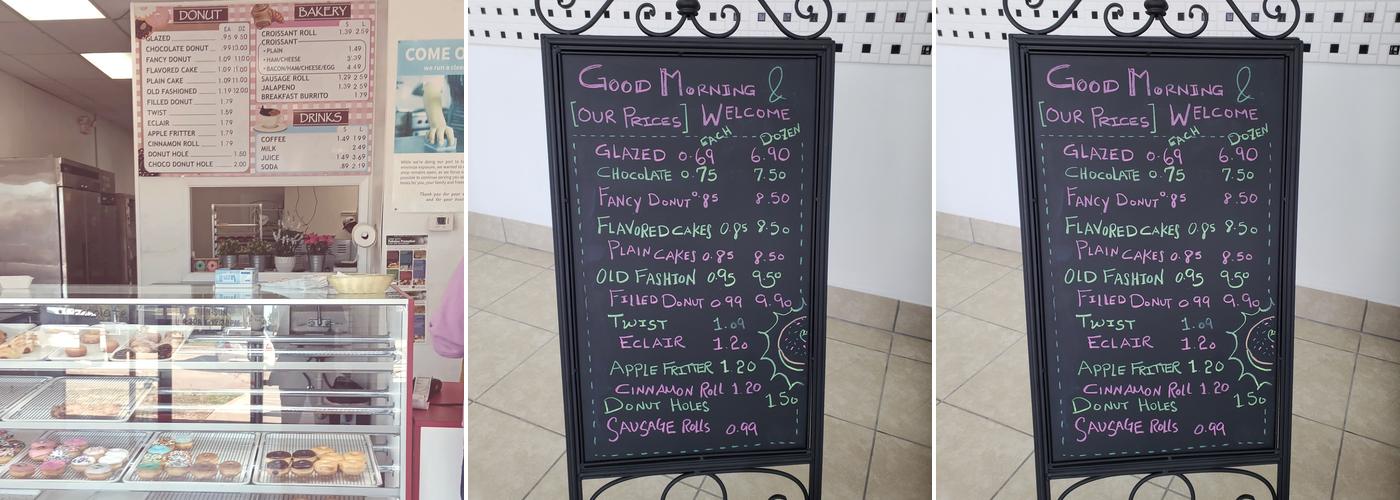 DONUT
EA DZ
GLAZED .95 9.50
CHOCOLATE DONUT .99
FANCY DONUT 1.09 11.00
FLAVORED CAKE 1.09 11.00
PLAIN CAKE 1.09 11.00
OLD FASHIONED 1.19 12.00
FILLED DONUT 1.79
TWIST 1.59
ECLAIR 1.79
APPLE FRITTER 1.79
CINNAMON ROLL 1.79
DONUT HOLE 1.50
CHOCO DONUT HOLE 2.00
BAKERY
S L
CROISSANT ROLL 1.39 2.59
CROISSANT
• PLAIN 1.49
• HAM/CHEESE 3.39
• BACON/HAM/CHEESE/EGG 4.49
SAUSAGE ROLL 1.29 2.59
JALAPENO 1.39 2.59
BREAKFAST BURRITO 1.79
DRINKS
S L
COFFEE 1.49 1.99
MILK 2.49
JUICE 1.49 3.69
SODA .89 2.19
COME O
we run a clean
Thank you for your
and for your
GOOD MORNING &
[OUR PRICES] WELCOME
EACH DOZEN
GLAZED 0.69 6.90
CHOCOLATE 0.75 7.50
FANCY DONUT 0.85 8.50
FLAVORED CAKES 0.85 8.50
PLAIN CAKES 0.85 8.50
OLD FASHION 0.95 9.50
FILLED DONUT 0.99 9.90
TWIST 1.09
ECLAIR 1.20
APPLE FRITTER 1.20
CINNAMON ROLL 1.20
DONUT HOLES 1.50
SAUSAGE ROLLS 0.99
GOOD MORNING &
[OUR PRICES] WELCOME
EACH DOZEN
GLAZED 0.69 6.90
CHOCOLATE 0.75 7.50
FANCY DONUT 0.85 8.50
FLAVORED CAKES 0.85 8.50
PLAIN CAKES 0.85 8.50
OLD FASHION 0.95 9.50
FILLED DONUT 0.99 9.90
TWIST 1.09
ECLAIR 1.20
APPLE FRITTER 1.20
CINNAMON ROLL 1.20
DONUT HOLES 1.50
SAUSAGE ROLLS 0.99